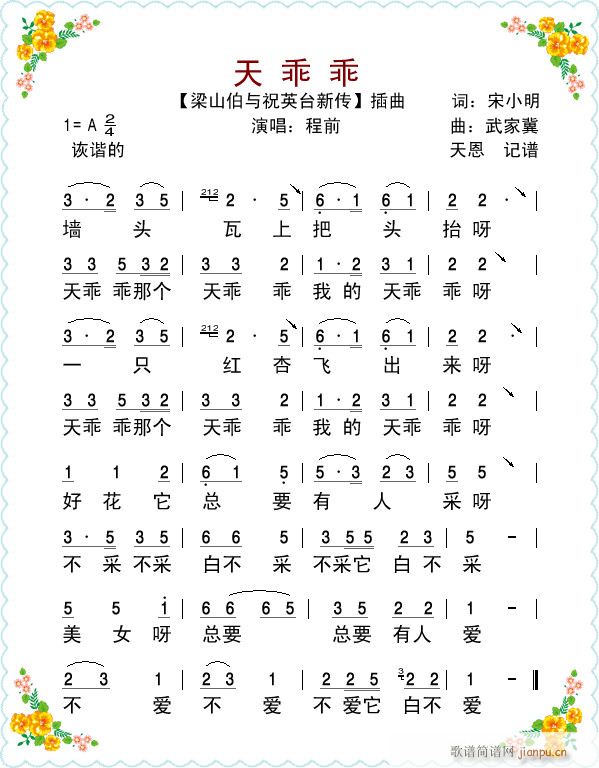 天 乖 乖
【梁山伯与祝英台新传】插曲 词：宋小明
1=A 2/4 演唱：程前 曲：武家冀
诙谐的 天恩 记谱
3· 2 3 5 | 212 2 · 5 | 6 · 1 6 1 | 2 2 · |
墙 头 瓦 上 把 头 抬 呀
3 3 5 3 2 | 3 3 2 | 1 · 2 3 1 | 2 2 · |
天乖 乖那个 天乖 乖 我 的 天乖 乖 呀
3· 2 3 5 | 212 2 · 5 | 6 · 1 6 1 | 2 2 · |
一 只 红 杏 飞 出 来 呀
3 3 5 3 2 | 3 3 2 | 1 · 2 3 1 | 2 2 · |
天乖 乖那个 天乖 乖 我 的 天乖 乖 呀
1 1 2 | 6 1 5 | 3 · 5 2 3 | 5 5 |
好 花 它 总 要 有 人 采 呀
3 · 5 3 5 | 6 6 5 | 3 5 5 2 2 | 5 - |
不 采 不采 白不 采 不采它 白 不 采
5 5 1 | 6 6 6 6 5 | 3 5 2 2 | 5 5 |
美 女 呀 总要 总要 有人 爱
2 3 3 | 2 1 2 | 2 2 5 3 2 2 | 1 - |
不 爱 不 爱 不 爱它 白不 爱
歌谱简谱网
jianpu.cn